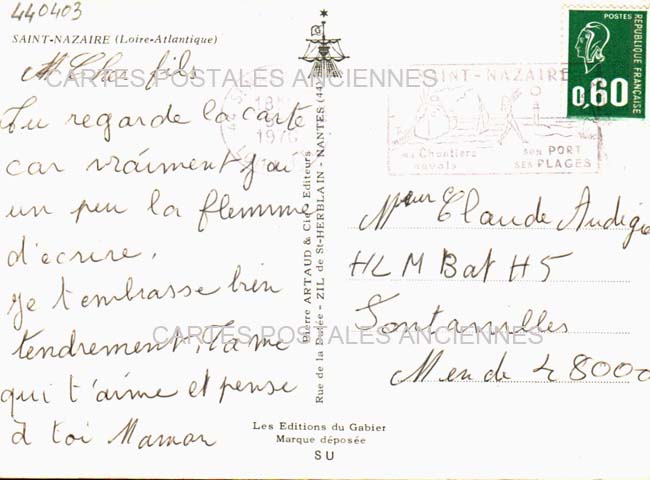 440403
SAINT-NAZAIRE (Loire-Atlantique)
Mr Cher fils
Tu regarde la carte
car vraiment j'ai
un peu la flemme
d'écrire.
Je t'embrasse bien
tendrement, Tame
qui t'aime et pense
à toi Maman
CARTES POSTALES ANCIENNES
CARTES POSTALES ANCIENNES
Pierre ARTAUD & Cie, Editeurs
Rue de la Dutée - ZIL de St-HERBLAIN - NANTES (44)
Les Editions du Gabier
Marque déposée
SU
POSTES
REPUBLIQUE FRANÇAISE
0,60
SAINT-NAZAIRE
1976
Chantiers
navals
SON PORT
SES PLAGES
Mr Claude Audigé
HLM Bat H5
Fontanilles
Mende 48000